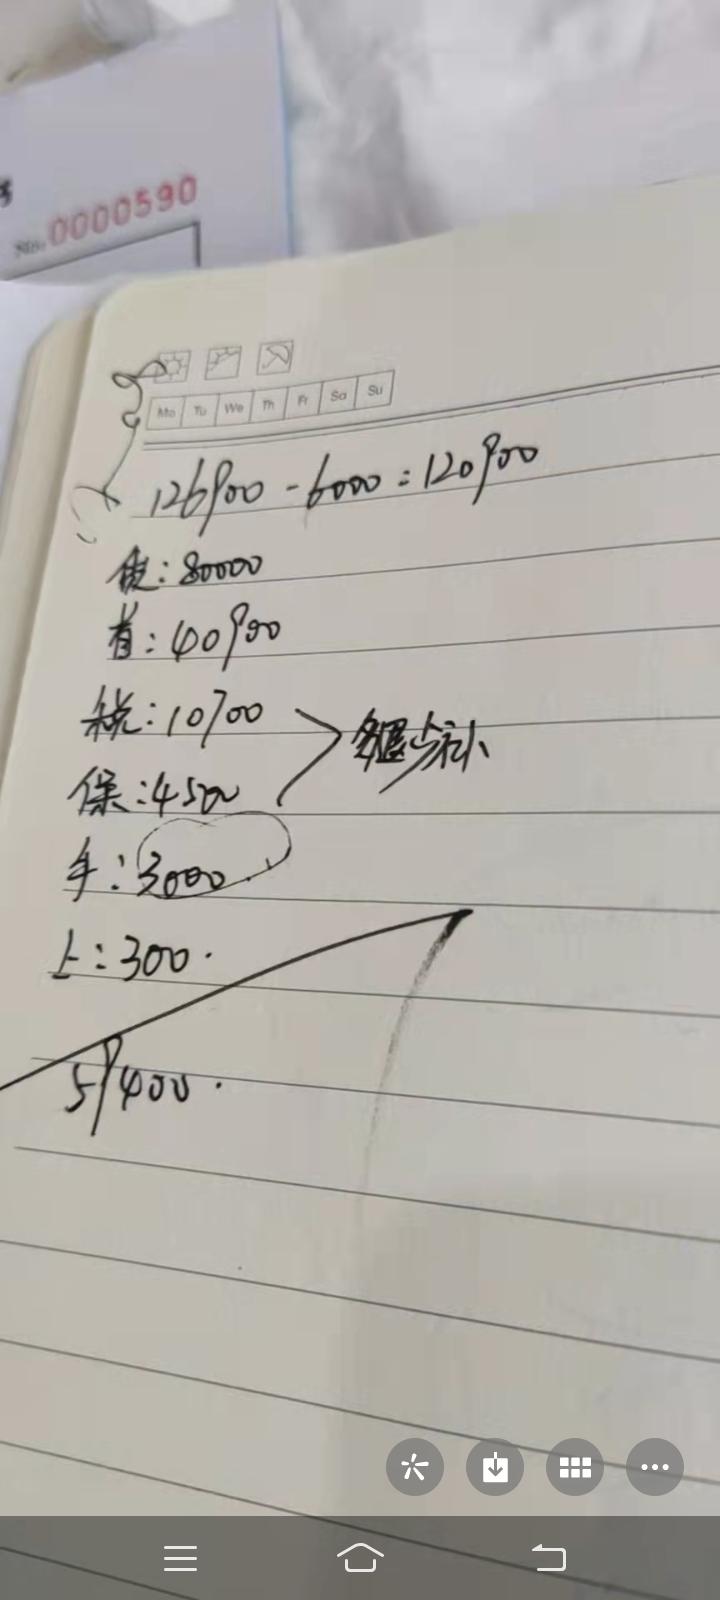 No. 0000590
Mo Tu We Th Fr Sa Su
126900 - 6000 = 120900
贷: 80000
首: 40900
税: 10700
保: 4500
多退少补
手: 3000.
上: 300.
59400.